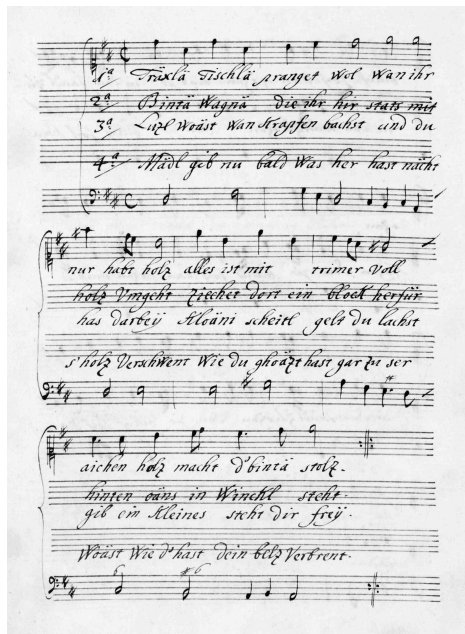 1ª Träxlä Tischlä pranget wol wan ihr
2ª Bintä Wagnä die ihr hir stats mit
3ª Luzl woäst wan Krapfen bachst und du
4ª Mädl gib nu bald was her hast nächt
nur habt holz alles ist mit trimer voll
holz Umgeht ziechet dort ein block herfür
has darbey Kloäni scheitl gelt du lachst
s'holz Verschwent Wie du ghoäzt hast gar zu ser
aichen holz macht d'bintä stolz.
hinten oäns in Winckl steht.
gib ein Kleines steht dir frey.
Woäst Wie d'hast dein belz Verbrent.
6 #6